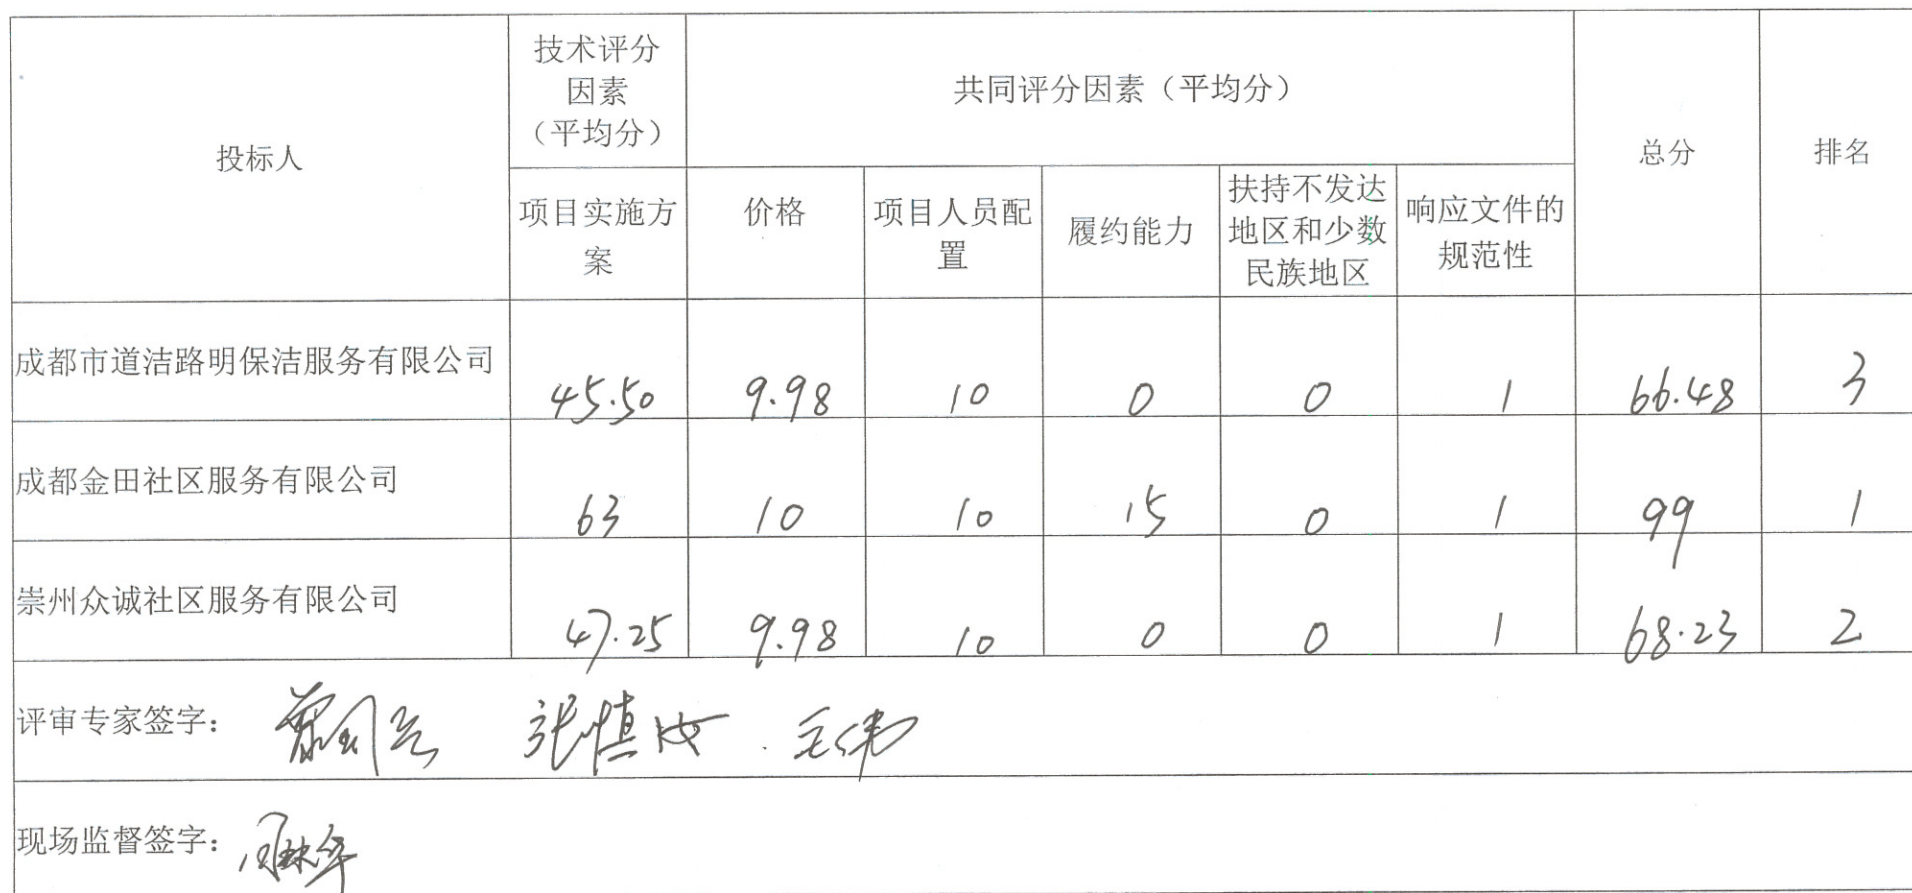 投标人
技术评分
因素
（平均分）
共同评分因素（平均分）
总分
排名
项目实施方
案
价格
项目人员配
置
履约能力
扶持不发达
地区和少数
民族地区
响应文件的
规范性
成都市道洁路明保洁服务有限公司 45.50 9.98 10 0 0 1 66.48 3
成都金田社区服务有限公司 63 10 10 15 0 1 99 1
崇州众诚社区服务有限公司 47.25 9.98 10 0 0 1 68.23 2
评审专家签字：
现场监督签字：